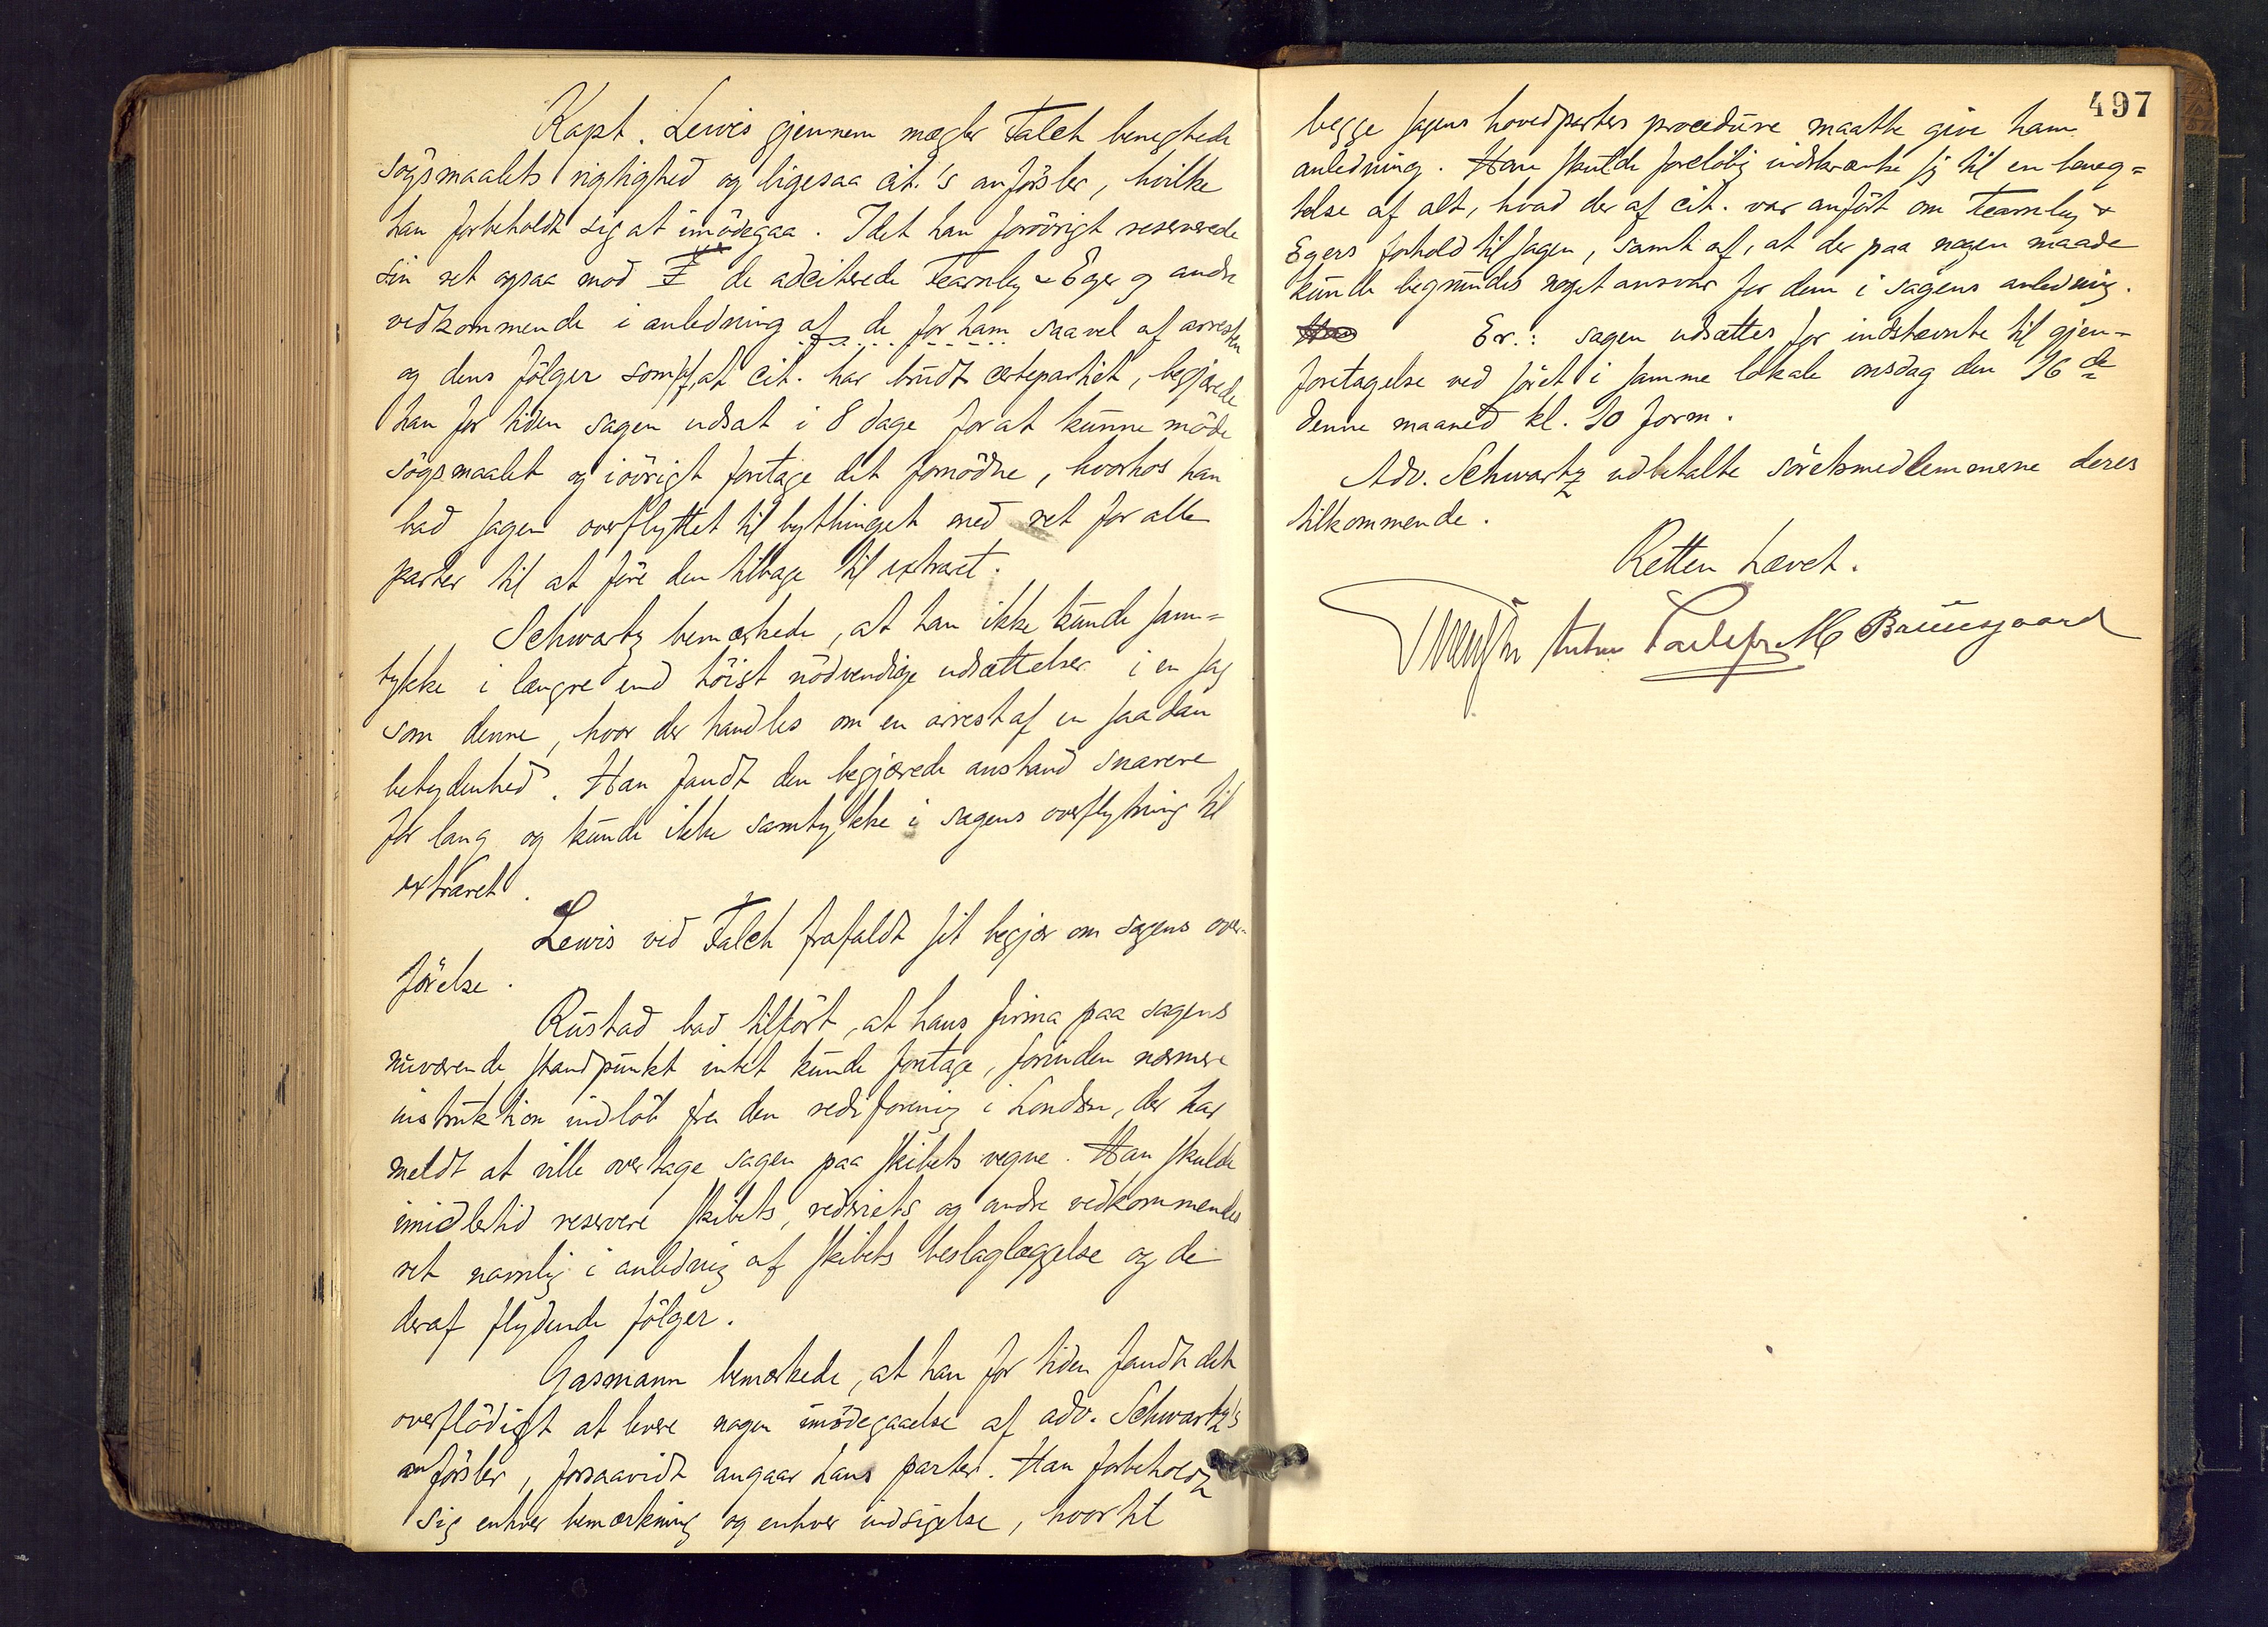 Kapt. Lewis gjennem mægler Falch benegtede
sögsmaalets rigtighed og ligesaa cit.'s anförsler, hvilke
han forbeholdt sig at imödegaa. Idet han forövrigt reserverede
sin ret ogsaa mod de adciterede Fearnley & Eger og andre
vedkommende i anledning af de for ham saavel af arresten
og dens fölger som af, at cit. har brudt certepartiet, begjærede
han for tiden sagen udsat i 8 dage for at kunne möde
sögsmaalet og iövrigt foretage det fornödne, hvorhos han
bad sagen overflyttet til bythinget med ret for alle
parter til at före den tilbage til extraret.
Schwartz bemærkede, at han ikke kunde sam=
tykke i længre end höist nödvendige udsættelser i en sag
som denne, hvor der handles om en arrest af en saadan
betydenhed. Han fandt den begjærede anstand snarere
for lang og kunde ikke samtykke i sagens overflytning til
extraret.
Lewis ved Falch frafaldt sit begjær om sagens over-
förelse.
Rustad bad tilfört, at hans firma paa sagens
nuværende standpunkt intet kunde foretage, forinden nærmere
instruktion indlöb fra den rederforening i London, der har
meldt at ville overtage sagen paa skibets vegne. Han skulde
imidlertid reservere skibets, rederiets og andre vedkommendes
ret navnlig i anledning af skibets beslaglæggelse og de
deraf flydende fölger.
Gasmann bemærkede, at han for tiden fandt det
overflödigt at levere nogen imödegaaelse af adv. Schwartz's
anförsler, forsaavidt angaar hans parter. Han forbeholdt
sig enhver bemærkning og enhver indsigelse, hvortil
497
begge sagens hovedparters procedure maatte give ham
anledning. Han skulde foreløbig indskrænke sig til en beneg=
telse af alt, hvad der af cit. var anfört om Fearnley &
Egers forhold til sagen, samt af, at der paa nogen maade
kunde begrundes noget ansvar for dem i sagens anledning.
Er.: sagen udsættes for indstævnte til gjen=
foretagelse ved söret i samme lokale onsdag den 16de
denne maaned kl. 10 form.
Adv. Schwartz udbetalte söretsmedlemmerne deres
tilkommende.
Retten hævet.
M Bruusgaard